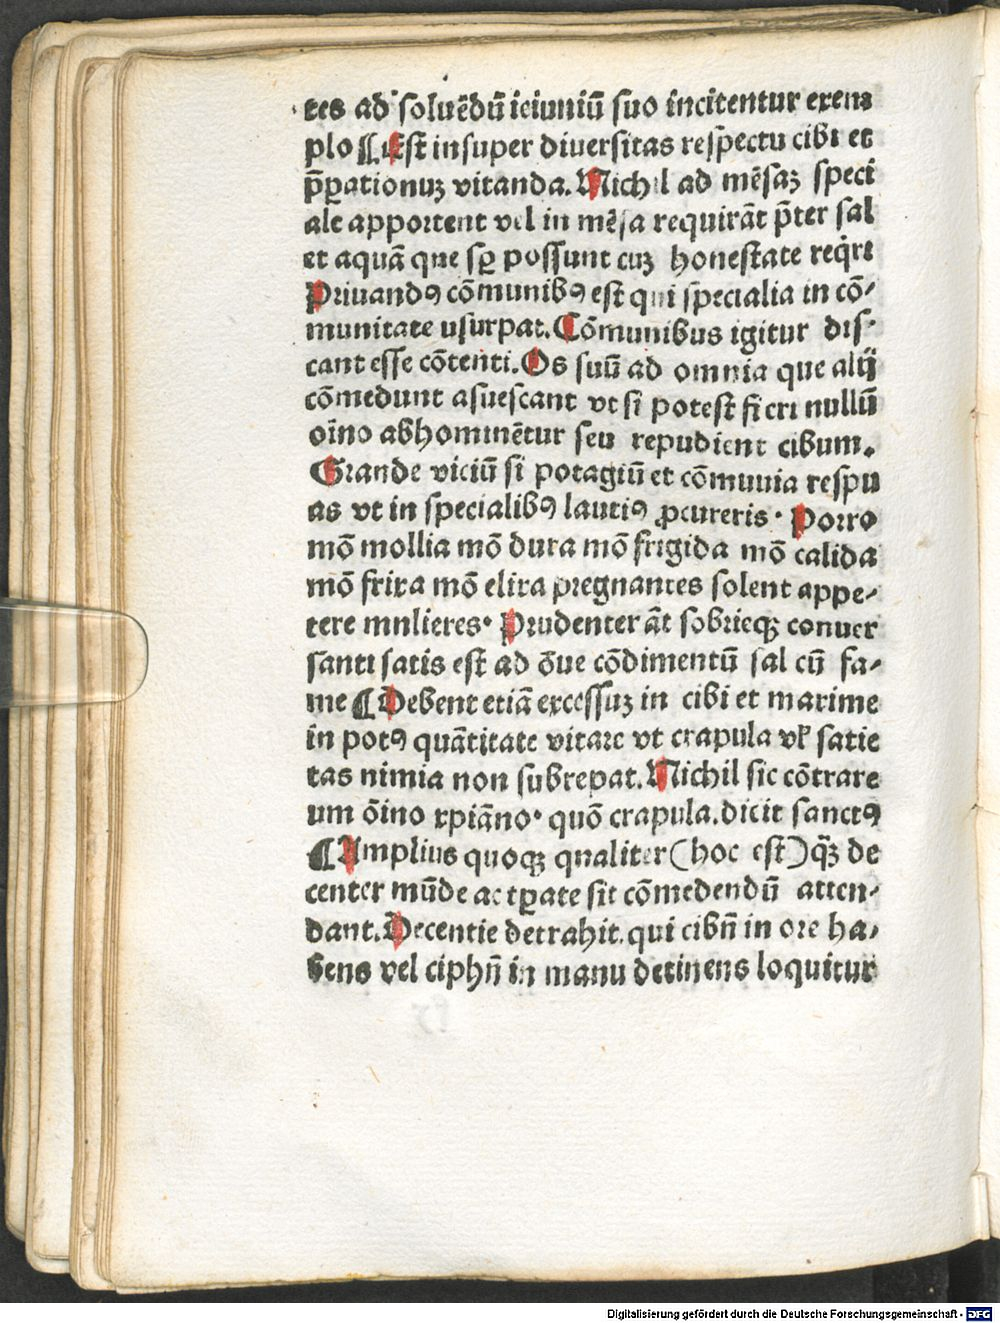 tes ad soluēdū ieiuniū suo incitentur exem
plo ¶ Est insuper diuersitas respectu cibi et
p̄ꝑationuꝫ vitanda. Nichil ad mēsaꝫ speci
ale apportent vel in mēsa requirāt p̄ter sal
et aquā que sꝑ possunt cuꝫ honestate reqͥri
Priuandꝯ cōmunibꝯ est qui specialia in cō⸗
munitate usurpat. Cōmunibus igitur dis⸗
cant esse cōtenti. Os suū ad omnia que alij
cōmedunt asuescant vt si potest fieri nullū
oīno abhominētur seu repudient cibum.
Grande viciū si potagiū et cōmunia respu
as vt in specialibꝯ lautiꝯ ꝓcureris. Porro
mō mollia mō dura mō frigida mō calida
mō frixa mō elixa pregnantes solent appe⸗
tere mnlieres. Prudenter āt sobrieqꝫ conuer
santi satis est ad ōue cōdimentū sal cū fa⸗
me ¶ Debent etiā excessuꝫ in cibi et maxime
in potꝯ quātitate vitare vt crapula vꝉ satie
tas nimia non subrepat. Nichil sic cōtrare
um oīno xpiāno. quō crapula. dicit sanctꝯ
¶ Amplius quoqꝫ qnaliter (hoc est) qͣꝫ de
center mūde ac tꝑate sit cōmedendū atten⸗
dant. Decentie detrahit. qui cibū in ore ha⸗
bens vel ciphū in manu detinens loquitur
Digitalisierung gefördert durch die Deutsche Forschungsgemeinschaft - DFG